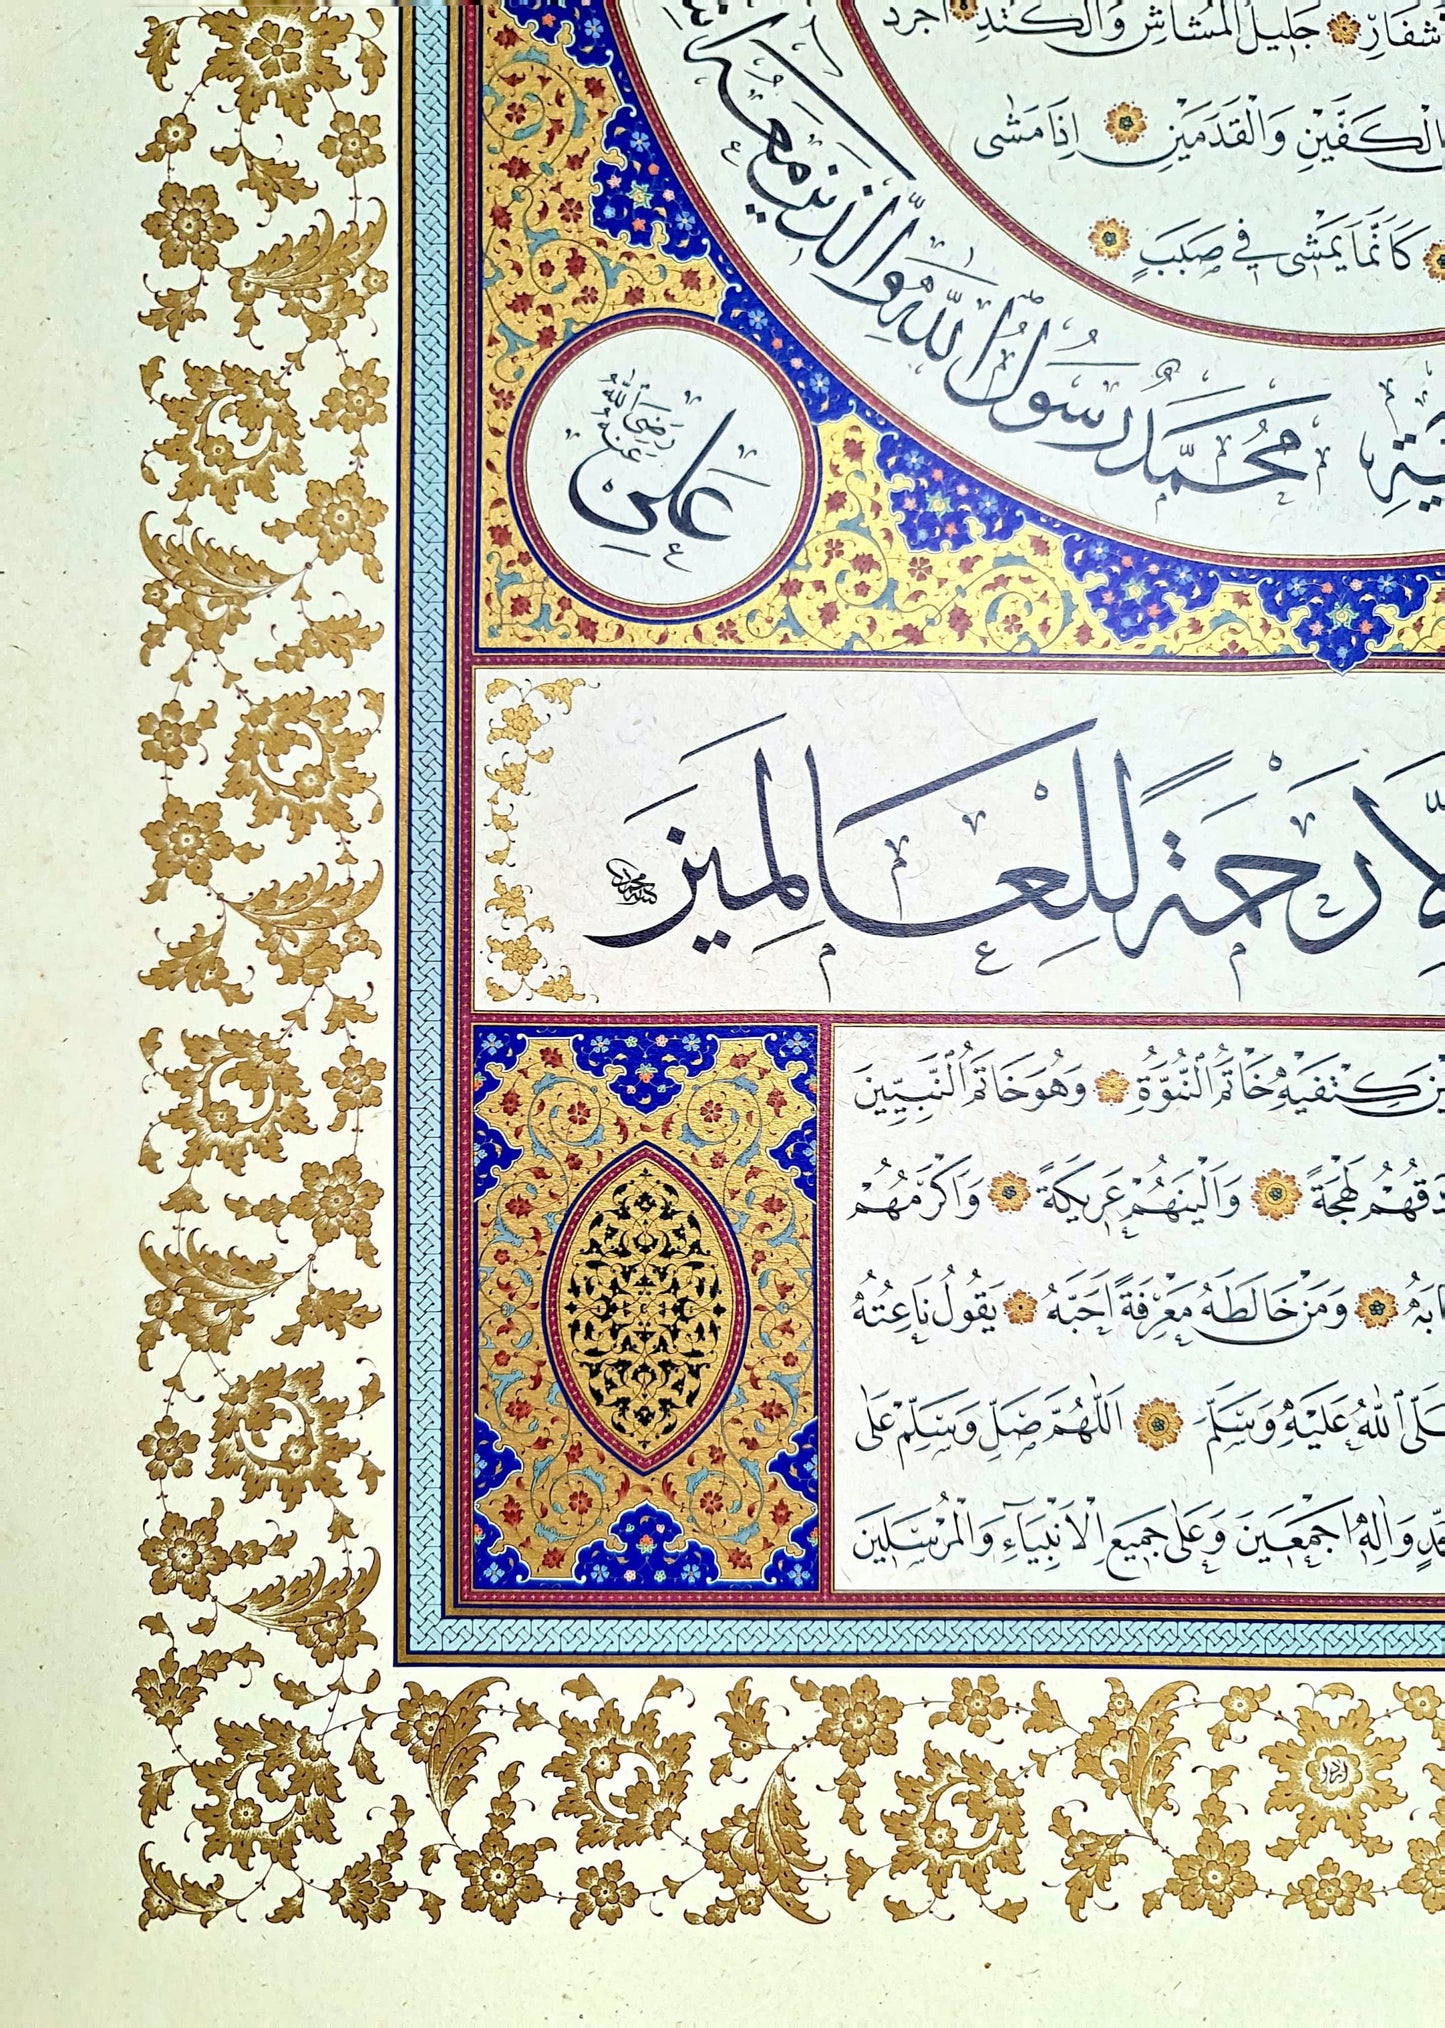 شْفَارِ جَلِيلُ الْمُشَاشِ وَالْكَتَدِ اَجْرَدُ
الْكَفَّيْنِ وَالْقَدَمَيْنِ اِذَا مَشٰى
كَاَنَّمَا يَمْشٖى فٖى صَبَبٍ
مُحَمَّدٌ رَسُولُ اللّٰهِ وَالَّذٖينَ مَعَهُ
عَلِىٌّ
رَضِىَ اللّٰهُ عَنْهُ
اِلَّا رَحْمَةً لِلْعَالَمٖينَ
بَيْنَ كَتِفَيْهِ خَاتَمُ النُّبُوَّةِ وَهُوَ خَاتَمُ النَّبِيّٖينَ
دَقُهُمْ لَهْجَةً وَاَلْيَنُهُمْ عَرٖيكَةً وَاَكْرَمُهُمْ
ابَهُ وَمَنْ خَالَطَهُ مَعْرِفَةً اَحَبَّهُ يَقُولُ نَاعِتُهُ
صَلَّى اللّٰهُ عَلَيْهِ وَسَلَّمَ اَللّٰهُمَّ صَلِّ وَسَلِّمْ عَلٰى
مَّدٍ وَاٰلِهٖ اَجْمَعٖينَ وَعَلٰى جَمٖيعِ الْاَنْبِيَاءِ وَالْمُرْسَلٖينَ